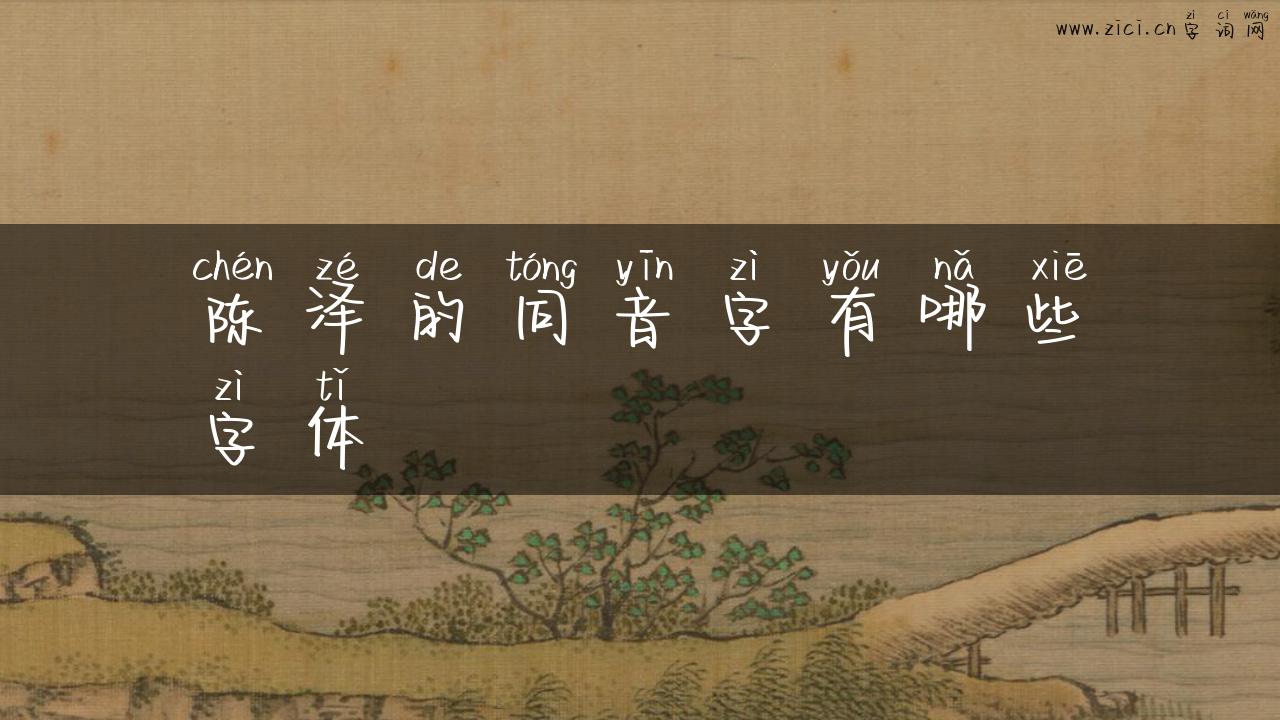 zì cí wǎng
www.zici.cn字词网
chén zé de tóng yīn zì yǒu nǎ xiē
陈泽的同音字有哪些
zì tǐ
字体